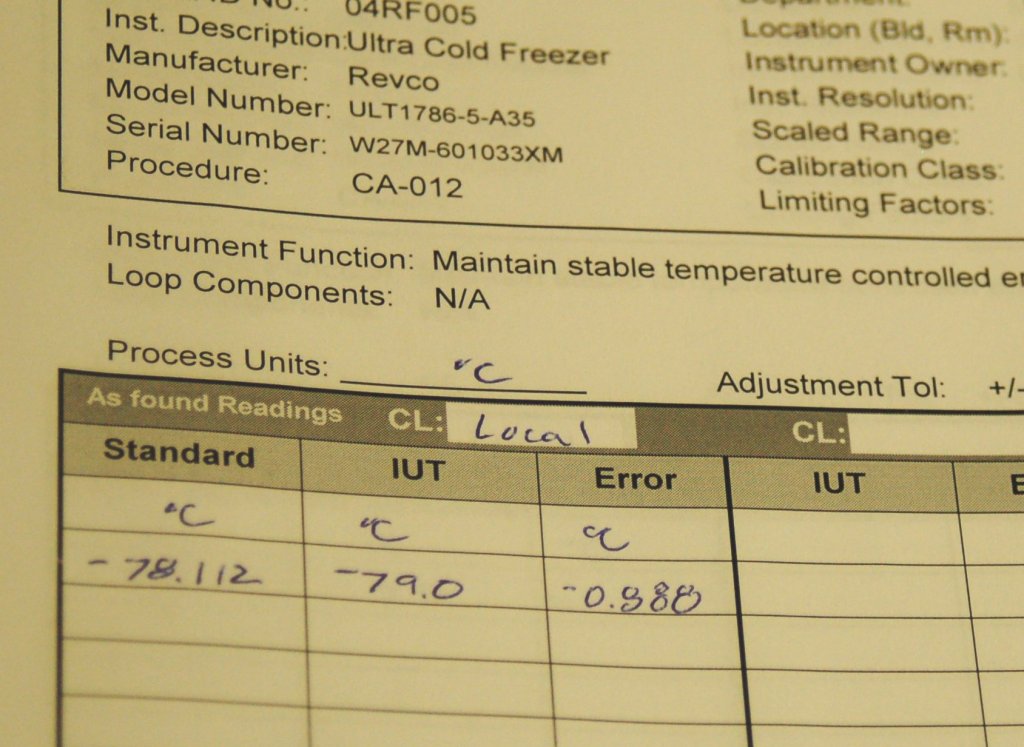 No.: 04RF005
Inst. Description: Ultra Cold Freezer
Manufacturer: Revco
Model Number: ULT1786-5-A35
Serial Number: W27M-601033XM
Procedure: CA-012
Location (Bld, Rm):
Instrument Owner:
Inst. Resolution:
Scaled Range:
Calibration Class:
Limiting Factors:
Instrument Function: Maintain stable temperature controlled
Loop Components: N/A
Process Units: °C
Adjustment Tol: +/-
As found Readings CL: Local CL:
Standard IUT Error IUT
°C °C °C
-78.112 -79.0 -0.888